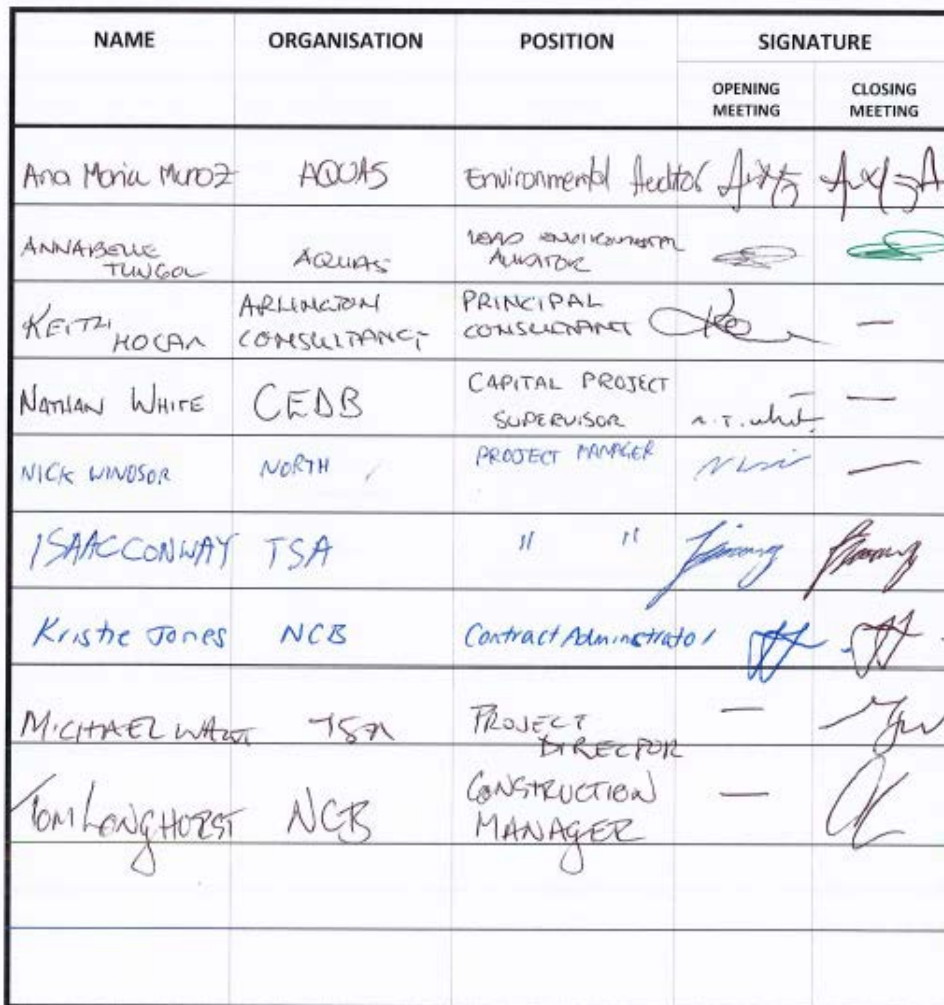 NAME ORGANISATION POSITION SIGNATURE
OPENING MEETING CLOSING MEETING
Ana Maria Munoz AQUAS Environmental Auditor
ANNABELLE TUNGOL AQUAS LEAD ENVIRONMENTAL AUDITOR
KEITH HOGAN ARLINGTON CONSULTANCY PRINCIPAL CONSULTANT —
NATHAN WHITE CEDB CAPITAL PROJECT SUPERVISOR N.T. White —
NICK WINDSOR NORTH PROJECT MANAGER —
ISAAC CONWAY TSA " "
Kristie Jones NCB Contract Administrator
MICHAEL TSA PROJECT DIRECTOR —
TOM LONGHURST NCB CONSTRUCTION MANAGER —